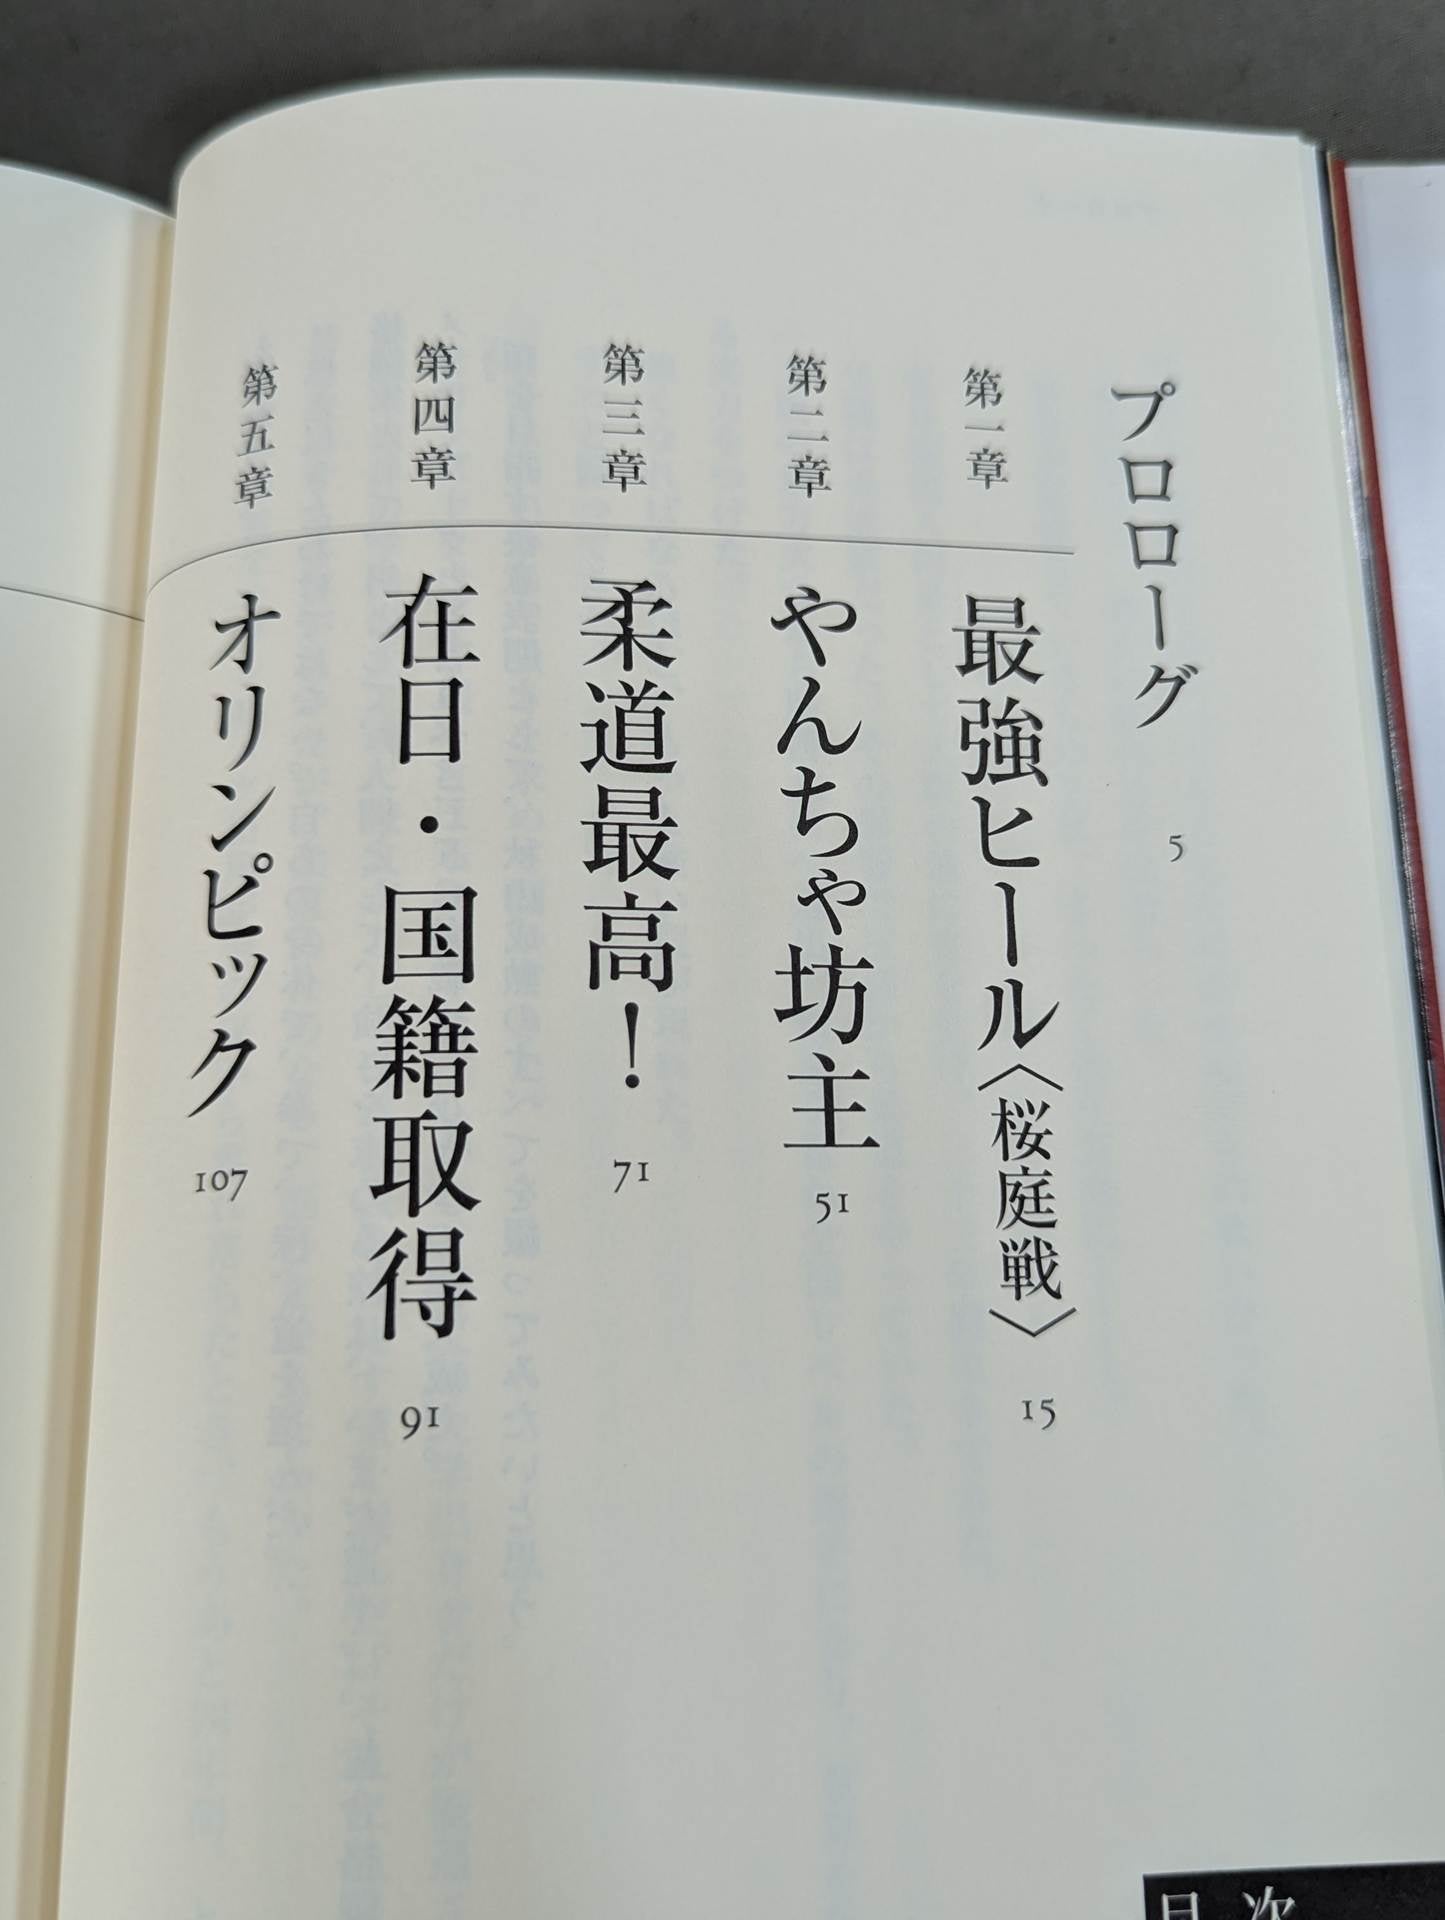 プロローグ 5
第一章 最強ヒール〈桜庭戦〉 15
第二章 やんちゃ坊主 51
第三章 柔道最高！ 71
第四章 在日・国籍取得 91
第五章 オリンピック 107
目次